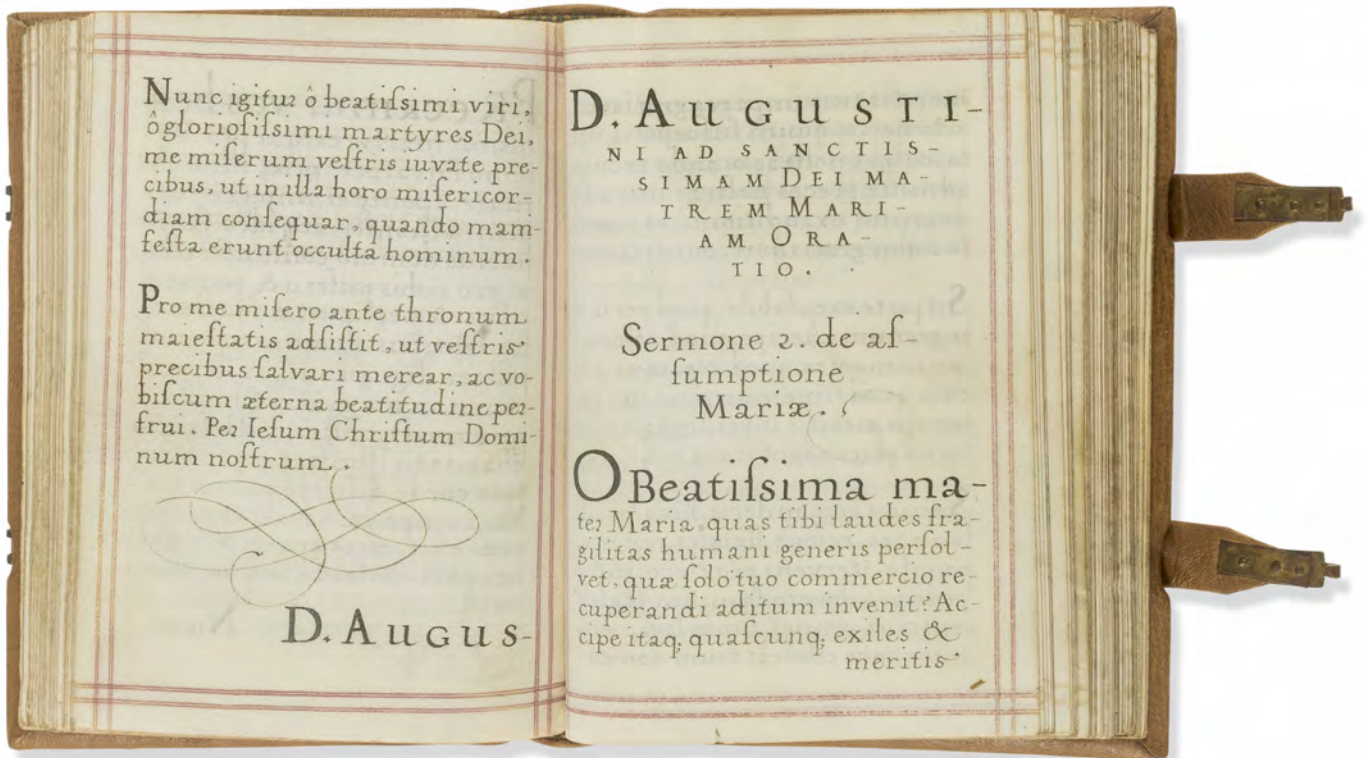 Nunc igitur ô beatiſsimi viri,
ô glorioſiſsimi martyres Dei,
me miſerum veſtris iuvate pre-
cibus, ut in illa horo miſericor-
diam conſequar, quando mani-
feſta erunt occulta hominum.
Pro me miſero ante thronum
maieſtatis adſiſtit, ut veſtris
precibus ſalvari merear, ac vo-
biſcum æterna beatitudine per-
frui. Per Ieſum Chriſtum Domi-
num noſtrum.
D. AUGUS-
D. AUGUSTI-
NI AD SANCTIS-
SIMAM DEI MA-
TREM MARI-
AM ORA-
TIO.
Sermone 2. de aſ-
ſumptione
Mariæ.
O Beatiſsima ma-
ter Maria, quas tibi laudes fra-
gilitas humani generis perſol-
vet, quæ ſolo tuo commercio re-
cuperandi aditum invenit? Ac-
cipe itaq; quaſcunq; exiles &
meritis